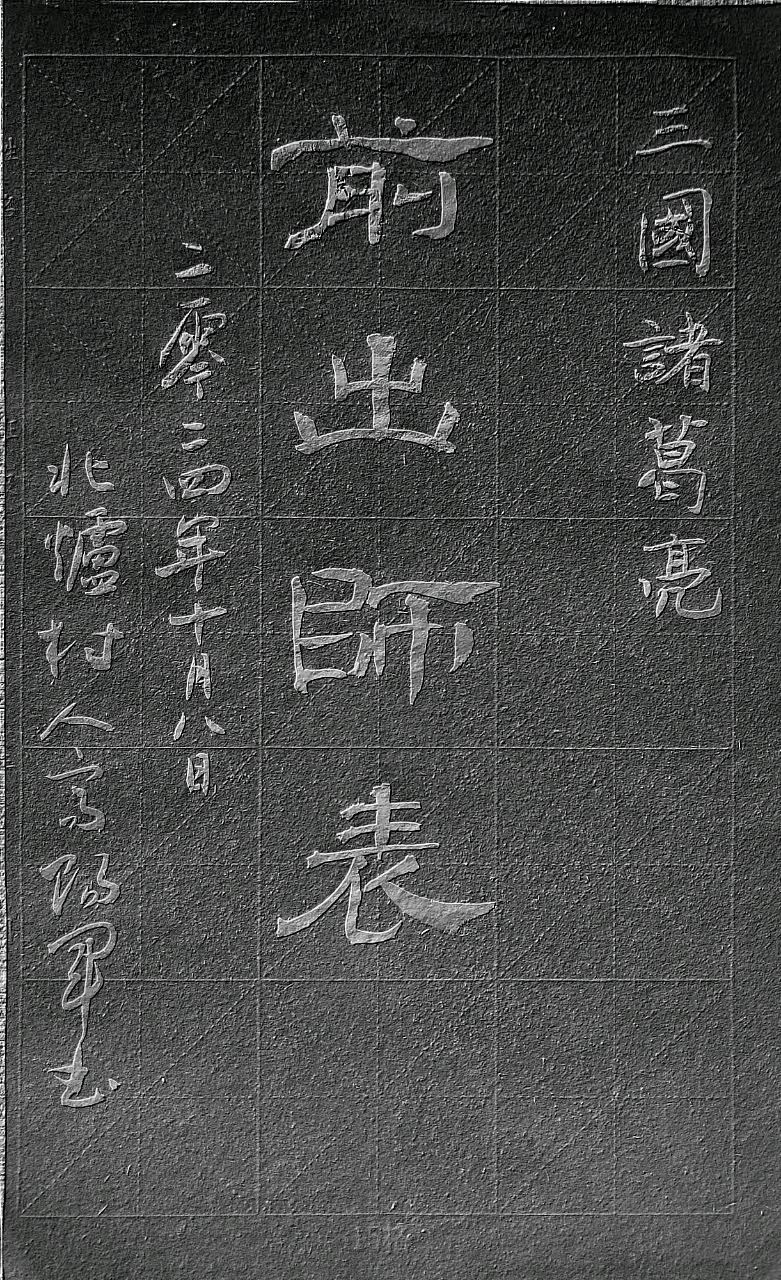 三國諸葛亮
前出師表
二零二四年十月八日
北爐村人高陽軍书